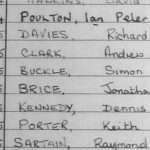 HAWKINS, David
POULTON, Ian Peter
DAVIES, Richard
CLARK, Andrew
BUCKLE, Simon
BRICE, Jonatha
KENNEDY, Dennis
PORTER, Keith
SARTAIN, Raymond